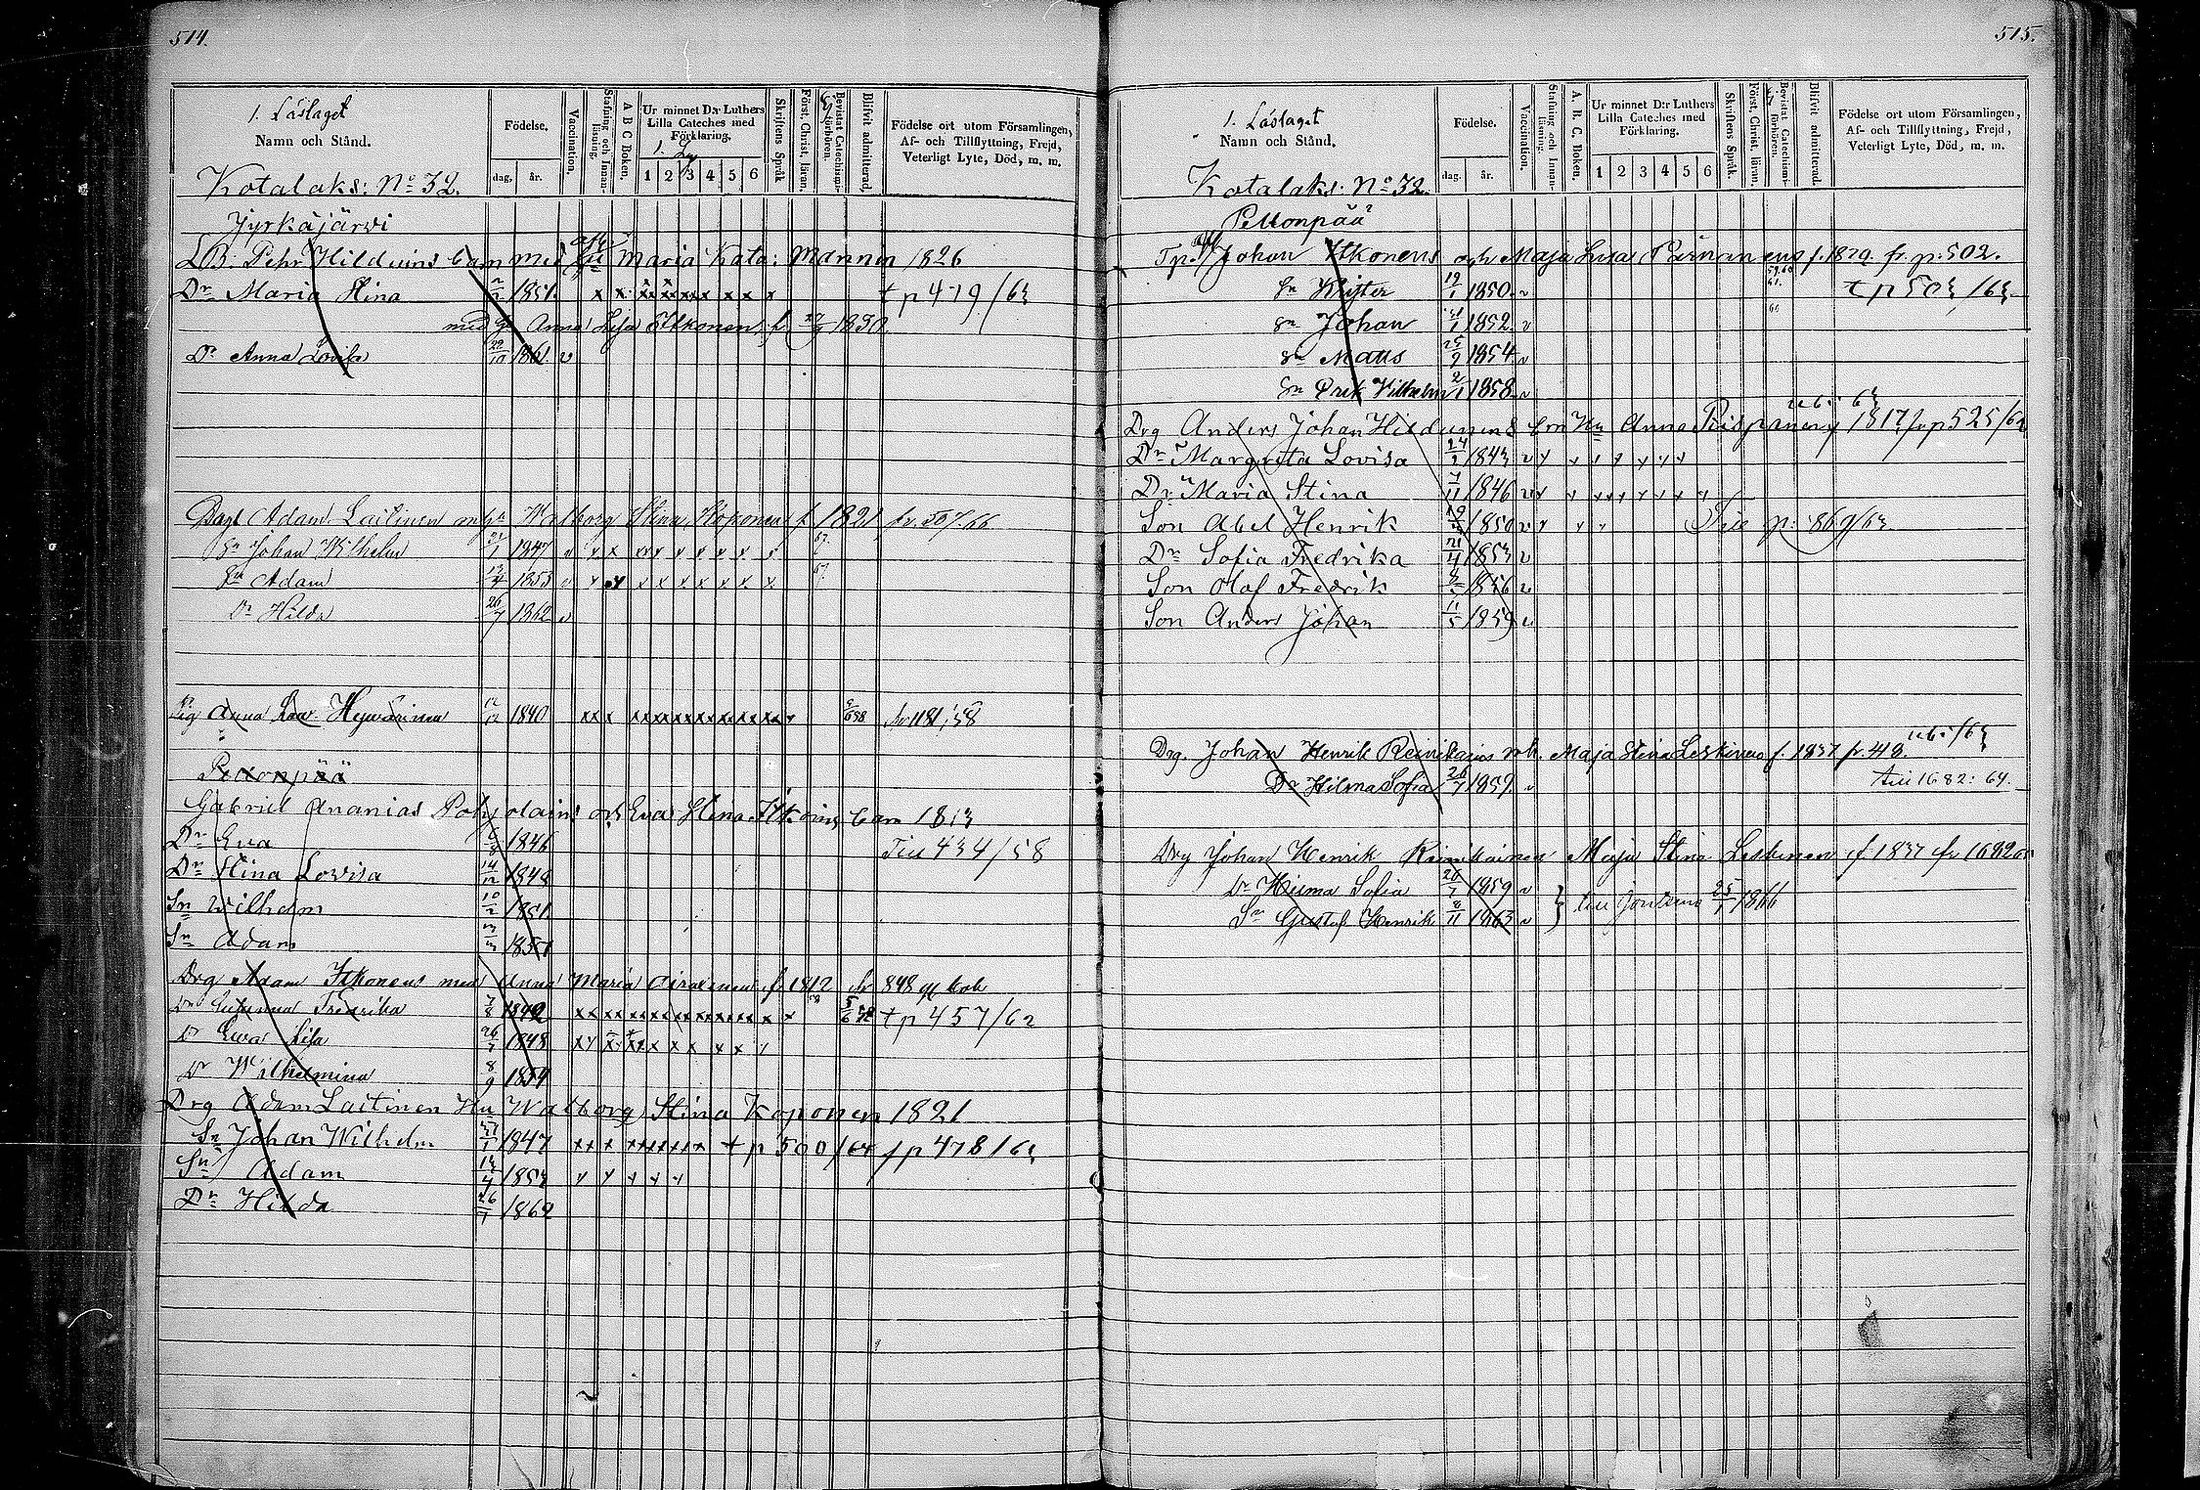 514.
1. Läslaget
Namn och Stånd.
Födelse.
dag. år.
Vaccination.
Stafning och Innanläsning.
A B C Boken.
Ur minnet D:r Luthers Lilla Cateches med Förklaring.
1 2 3 4 5 6
Skriftens Språk
Först. Christ. läran.
Bevistat Catechismiförhören.
Blifvit admitterad.
Födelse ort utom Församlingen, Af- och Tillflyttning, Frejd, Veterligt Lyte, Död, m. m.
Kotalaks: No 32.
Jyrkäjärvi
LB: Pehr Hilduins barn med Maria Kata: Männin 1826
Dr Maria Stina 1851 t p 479/63
med Anna Lisa Itkonen f 1830
Dr Anna Lovisa 22/10 1861 v
Adam Laitinen Walborg Stina Koponen f. 1821 fr. 507. 66
Sn Johan Wilhelm 1847 v
Sn Adam 13/4 1853 v
Dr Hilda 26/7 1862 v
Pig Anna Hyvärinen 12/12 1840
Pettonpää
Gabriel Ananias Pohjolains och Eva Stina Itkoins barn 1813
Dr Eva 1846 Till 434/58
Dr Stina Lovisa 14/12 1848
Sn Wilhelm 10/2 1851
Sn Adam
Drg Adam Itkonens med Anna Maria f 1812 fr 848
Dr Fredrika 7/8 1842 t p 457/62
Dr Eva Lisa 1848
Dr Wilhelmina 8/9 1854
Drg Adam Laitinen Hu Walborg Stina Koponen 1821
Sn Johan Wilhelm 1847 t p 500/64 f p 478/63
Sn Adam 13/4 1853
Dr Hilda 26/7 1862
515.
1. Läslaget
Namn och Stånd.
Födelse.
dag. år.
Vaccination.
Stafning och Innanläsning.
A. B. C. Boken.
Ur minnet D:r Luthers Lilla Cateches med Förklaring.
1 2 3 4 5 6
Skriftens Språk.
Först. Christ. läran.
Bevistat Catechismiförhören.
Blifvit admitterad.
Födelse ort utom Församlingen, Af- och Tillflyttning, Frejd, Veterligt Lyte, Död, m. m.
Kotalaks: No 32.
Pettonpää
Johan Itkonens och Maja Lisa Pärnänens f. 1829. fr. p. 502.
Sn Krister 19/1 1850 v t p 503/63
Sn Johan 1852 v
Sn Matts 25/2 1854 v
Sn Erik Vilhelm 2/1 1858 v
Drg Anders Johan Hildunens Hu Anna Ruispanen f 1817 fr p 525/62
Dr Margreta Lovisa 24/2 1843 v
Dr Maria Stina 7/11 1846 v
Son Abel Henrik 1850 v Till p: 869/63
Dr Sofia Fredrika 21/4 1853 v
Son Olof Fredrik 1856 v
Son Anders Johan 11/5 1859 v
Drg. Johan Henrik Reinikains och. Maja Stina Leskinens f. 1837 fr. 418.
Dr Hilma Sofia 26/7 1859 v till 1682: 64.
Drg Johan Henrik Reinikainen Maja Stina Leskinen f 1837 fr 1682
Dr Hilma Sofia 26/7 1859 v
Sn Gustaf Henrik 8/11 1863 v till 25/1 1866